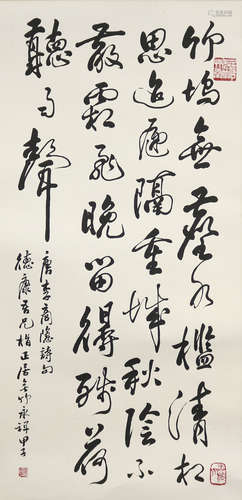 竹塢無塵水檻清相
思迢遞隔重城秋陰不
散霜飛晚留得殘荷
聽雨聲
唐李商隱詩句
德康吾兄指正 甲子